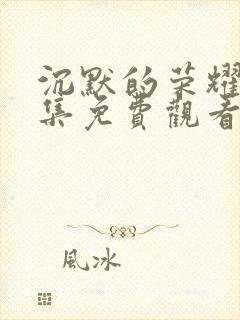 沉默的荣耀
集免費觀看
風冰